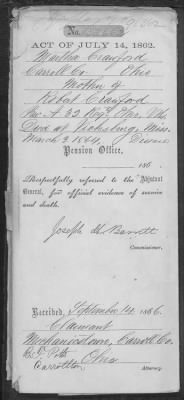 No.
ACT OF JULY 14, 1862.
Martha Crawford
Carroll Co Ohio
Mother of
Robert Crawford
Died at Vicksburg Miss.
March 2 1864
Pension Office,
186
Respectfully referred to the Adjutant
General, for official evidence of service
and death.
Joseph H. Barrett
Commissioner.
Received, September 14, 1866.
Claimant
Mechanicstown, Carroll Co.
Ohio
Carrollton
Attorney.